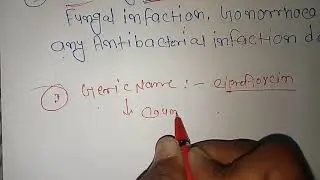 Fungal infaction, Gonorrhoea
any Antibacterial infaction d
③ Generic Name :- ciprofloxcin
↓ Coun